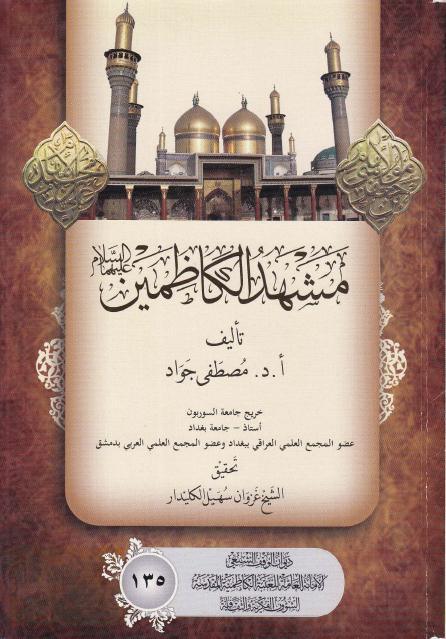 مَشْهَدُ الكَاظِمَيْن عليهما السلام
تأليف
أ.د. مُصْطَفى جَوَاد
خريج جامعة السوربون
أستاذ - جامعة بغداد
عضو المجمع العلمي العراقي ببغداد وعضو المجمع العلمي العربي بدمشق
تحقيق
الشيخ غَزْوَان سُهَيْل الكليدار
ديوان الوقف الشيعي
الأمانة العامة للعتبة الكاظمية المقدسة
الشؤون الفكرية والثقافية
١٣٥